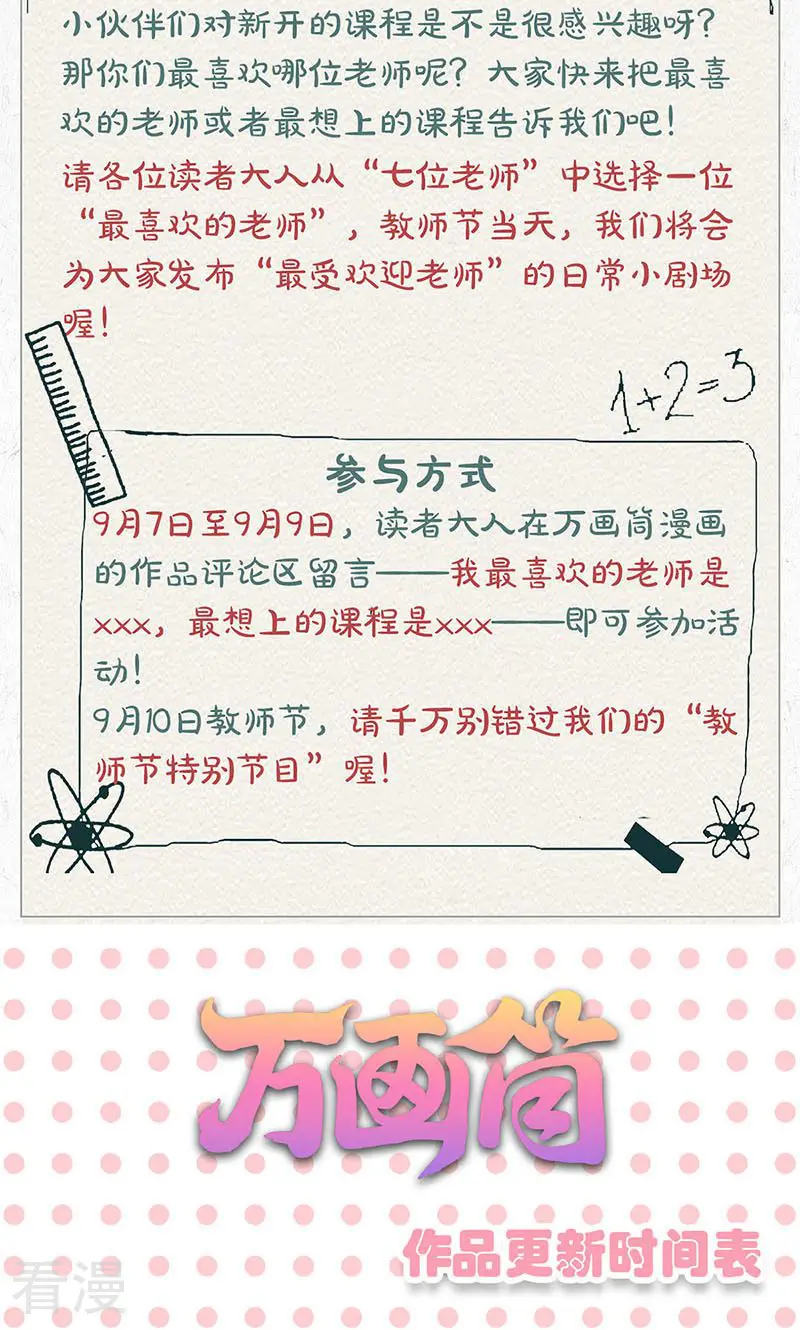 小伙伴们对新开的课程是不是很感兴趣呀？
那你们最喜欢哪位老师呢？大家快来把最喜
欢的老师或者最想上的课程告诉我们吧！
请各位读者大人从“七位老师”中选择一位
“最喜欢的老师”，教师节当天，我们将会
为大家发布“最受欢迎老师”的日常小剧场
喔！
1+2=3
参与方式
9月7日至9月9日，读者大人在万画筒漫画
的作品评论区留言——我最喜欢的老师是
xxx，最想上的课程是xxx——即可参加活
动！
9月10日教师节，请千万别错过我们的“教
师节特别节目”喔！
万画筒
作品更新时间表
看漫